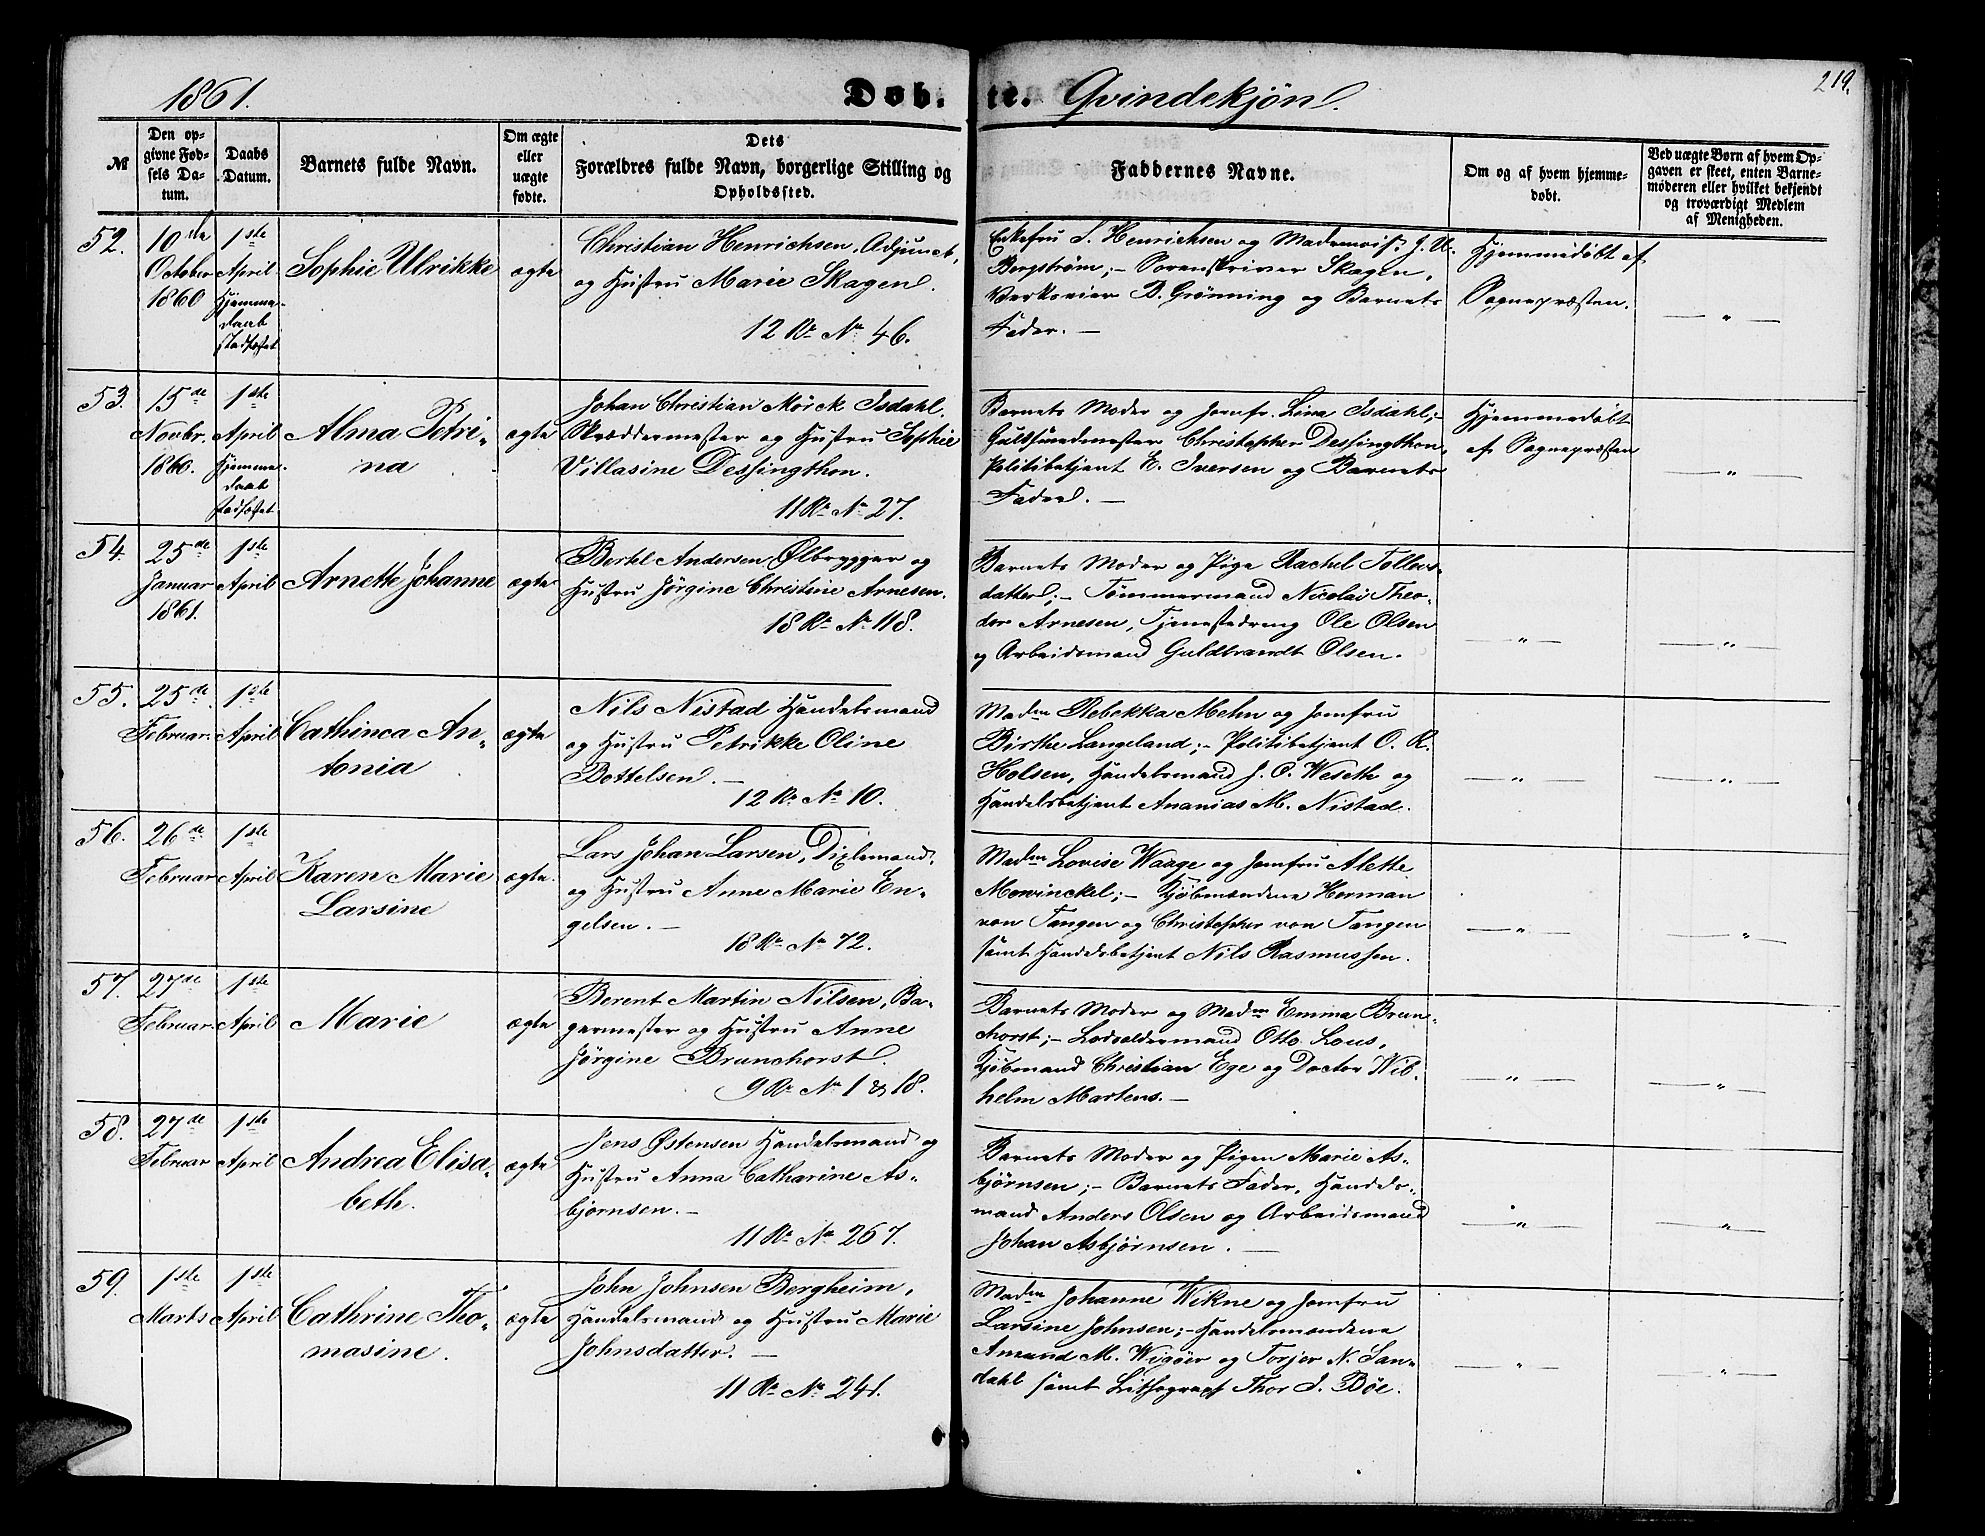 1861.
Døbte. Qvindekjøn.
219.
№
Den op-
givne Fød-
sels Da-
tum.
Daabs
Datum.
Barnets fulde Navn.
Om ægte
eller
uægte
fødte.
Dets
Forældres fulde Navn, borgerlige Stilling og
Opholdssted.
Faddernes Navne.
Om og af hvem hjemme-
døbt.
Ved uægte Børn af hvem Op-
gaven er skeet, enten Barne-
moderen eller hvilket bekjendt
og troværdigt Medlem
af Menigheden.
52.
10de
October
1860
1ste
April
Hjemme-
daab
stadfæstet
Sophie Ulrikke
ægte
Christian Henrichsen, Adjunct,
og Hustru Marie Skagen.
12 R. No 46.
Enkefru S. Henrichsen og J. U.
Bergstrøm;- Sorenskriver Skagen,
B. Grønning og Barnets
Fader. —
Hjemmedøbt af
Sognepræsten.
— " —
53.
15de
Novbr.
1860.
1ste
April
Hjemme-
daab
stadfæstet
Alma Petri-
na
ægte
Johan Christian Mørck Isdahl.
Skræddermester og Hustru Sophie
Villasine Dessingthon.
11 R. No 27.
Barnets Moder og Jomfr. Lina Isdahl;-
Guldsmedmester Christopher Dessingthon,
Politibetjent E. Iversen og Barnets
Fader. —
Hjemmedøbt
af Sognepræsten
— " —
54.
25de
Januar
1861.
1ste
April
Arnette Johanne
ægte
Bertel Andersen Ølbrygger og
Hustru Jörgine Christine Arnesen.
18 R. No 118.
Barnets Moder og Pige Rachel Tollevs-
datter;- Tømmermand Nicolai Theo-
dor Arnesen, Tjenestedreng Ole Olsen
og Arbeidsmand Guldbrandt Olsen.
— " —
— " —
55.
25de
Februar.
1ste
April
Cathinca An-
tonia
ægte
Nils Nistad Handelsmand
og Hustru Petrikke Oline
Bottelsen. —
12 R. No 10.
Madm Rebekka Mehn og Jomfru
Birthe Langeland;- Politibetjent O. R.
Holsen, Handelsmand J. O. Weseth og
Handelsbetjent Ananias M. Nistad.
— " —
— " —
56.
26de
Februar
1ste
April
Karen Marie
Larsine
ægte.
Lars Johan Larsen, Dixlemand,
og Hustru Anne Marie En-
gelsen. —
18 R. No 72.
Madm Lovise Waage og Jomfru Alette
Mowinckel;- Kjøbmændene Herman
von Tangen og Christopher von Tangen
samt Handelsbetjent Nils Rasmussen.
— " —
— " —
57.
27de
Februar.
1ste
April
Marie
ægte
Berent Martin Nilsen, Ba-
germester og Hustru Anne
Jörgine Brunchorst.
9 R. No 1 & 18.
Barnets Moder og Madm Emma Brun-
chorst;- Lodsoldermand Otto Lous,
Kjøbmand Christian Ege og Doctor Wil-
helm Martens. —
— " —
— " —
58.
27de
Februar
1ste
April
Andrea Elisa-
beth.
ægte
Jens Østensen Handelsmand og
Hustru Anna Catharine As-
bjørnsen. —
11 R. No 267.
Barnets Moder og Pigen Marie As-
bjørnsen;- Barnets Fader, Handels-
mand Anders Olsen og Arbeidsmand
Johan Asbjørnsen. —
— " —
— " —
59.
1ste
Marts
1ste
April
Cathrine Tho-
masine.
ægte
John Johnsen Bergheim,
Handelsmand og Hustru Marie
Johnsdatter. —
11 R. No 241.
Madm Johanne Wikne og Jomfru
Larsine Johnsen;- Handelsmændene
Amund M. Wigøer og Torjer N. San-
dahl samt Lithograf Thor J. Böe.
— " —
— " —